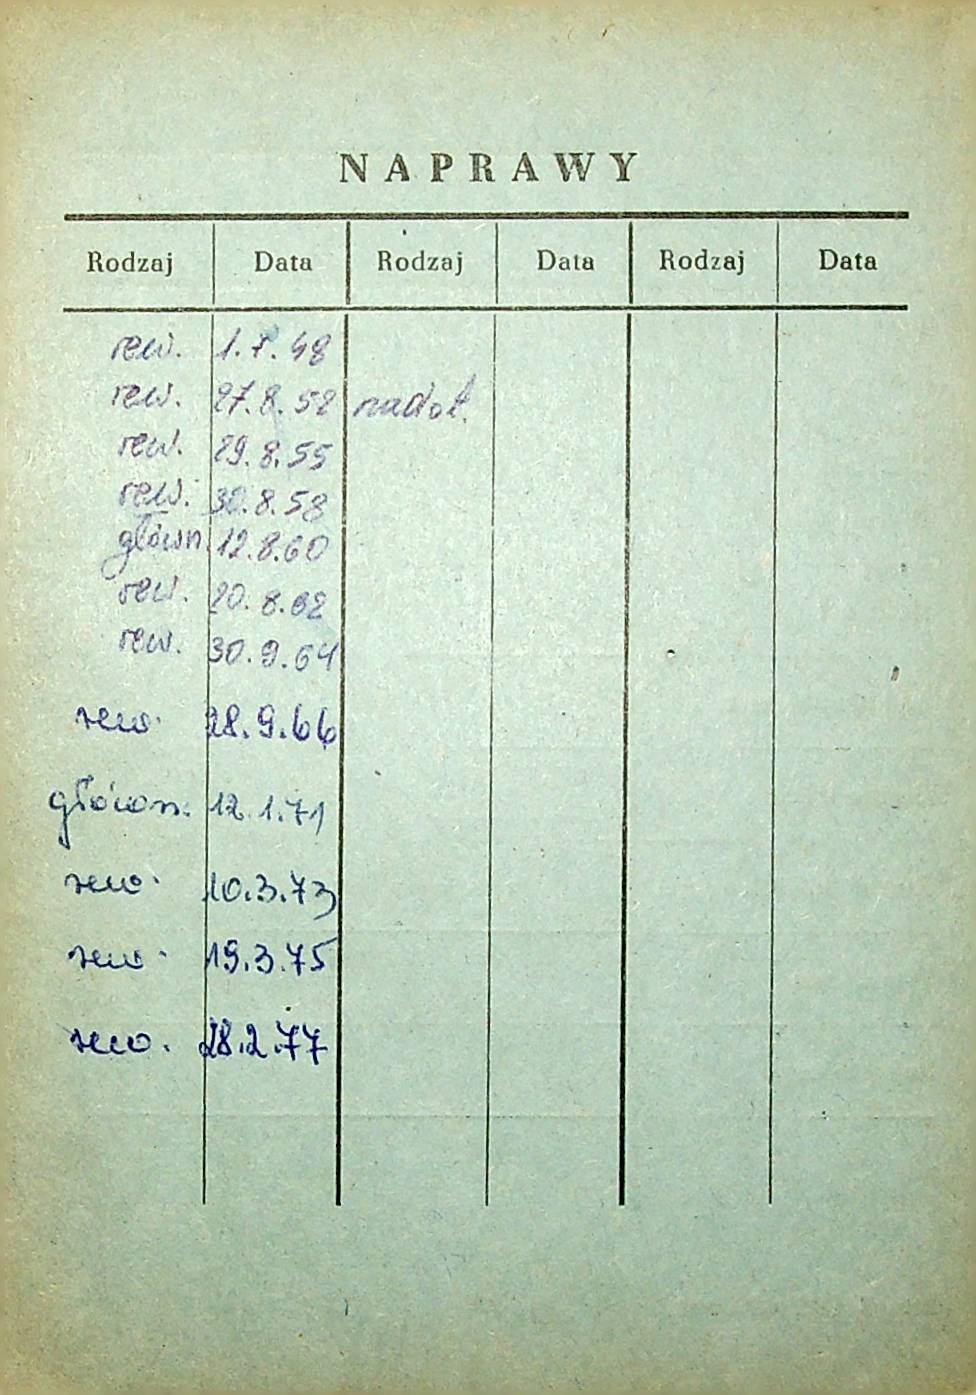 NAPRAWY
Rodzaj Data Rodzaj Data Rodzaj Data
rew. 1.7.48
rew. 27.8.52 nadot.
rew. 29.8.55
rew. 30.8.58
główn. 12.8.60
rew. 20.8.62
rew. 30.9.64
rew. 28.9.66
główn. 12.1.71
rew. 10.3.73
rew. 19.3.75
rew. 28.2.77